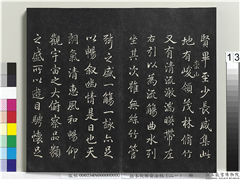 賢畢至少長咸集此
地有崇山峻領茂林脩竹
又有清流激湍暎帶左
右引以為流觴曲水列
坐其次雖無絲竹管
弦之盛一觴一詠亦足
以暢敘幽情是日也天
朗氣清惠風和暢仰
觀宇宙之大俯察品類
之盛所以遊目騁懷足